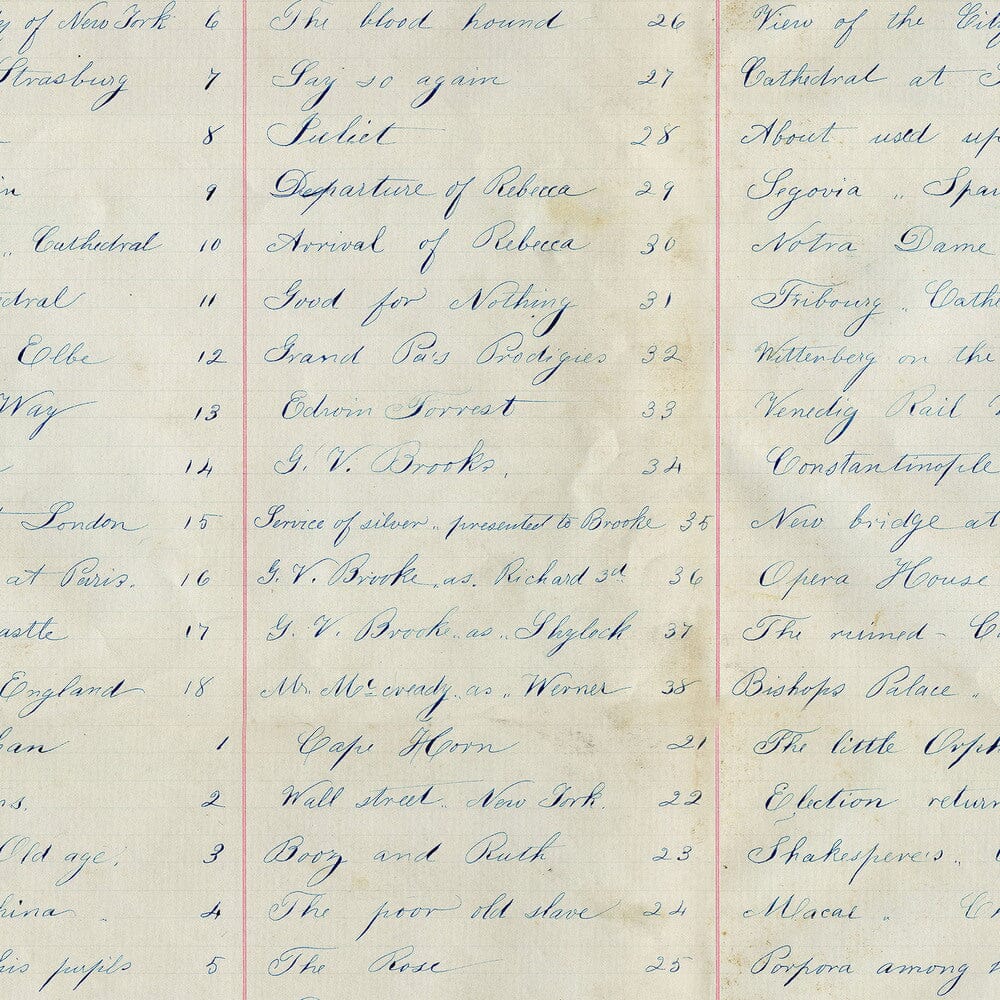 y of New York 6 The blood hound 26 View of the City
Strasburg 7 Say so again 27 Cathedral at S
8 Juliet 28 About used up
in 9 Departure of Rebecca 29 Segovia „ Spai
„ Cathedral 10 Arrival of Rebecca 30 Notra Dame
edral 11 Good for Nothing 31 Fribourg „ Cathe
Elbe 12 Grand Pa's Prodigies 32 Wittenberg on the
Way 13 Edwin Forrest 33 Venedig Rail W
14 G. V. Brooks. 34 Constantinople
London 15 Service of silver „ presented to Brooke 35 New bridge at
at Paris. 16 G. V. Brooke „ as „ Richard 3d 36 Opera House
astle 17 G. V. Brooke „ as „ Shylock 37 The ruined - C
England 18 Mr. Mc cready „ as „ Werner 38 Bishops Palace „
han 1 Cape Horn 21 The little Orph
ns. 2 Wall street „ New York. 22 Election return
Old age. 3 Booz and Ruth 23 Shakespere's „
hina „ 4 The poor old slave 24 Macae „ Ch
his pupils 5 The Rose 25 Porpora among h